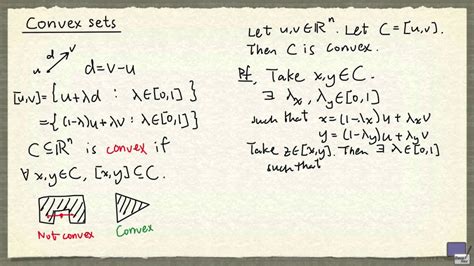 Convex sets
u v d=v-u
[u,v]={u+λd : λ∈[0,1]}
={(1-λ)u+λv : λ∈[0,1]}
C⊆ℝⁿ is convex if
∀ x,y∈C, [x,y]⊆C.
Not convex Convex
Let u,v∈ℝⁿ. Let C=[u,v].
Then C is convex.
Pf. Take x,y∈C.
∃ λₓ, λᵧ∈[0,1]
such that x=(1-λₓ)u+λₓv
y=(1-λᵧ)u+λᵧv
Take z∈[x,y]. Then ∃ λ∈[0,1]
such that